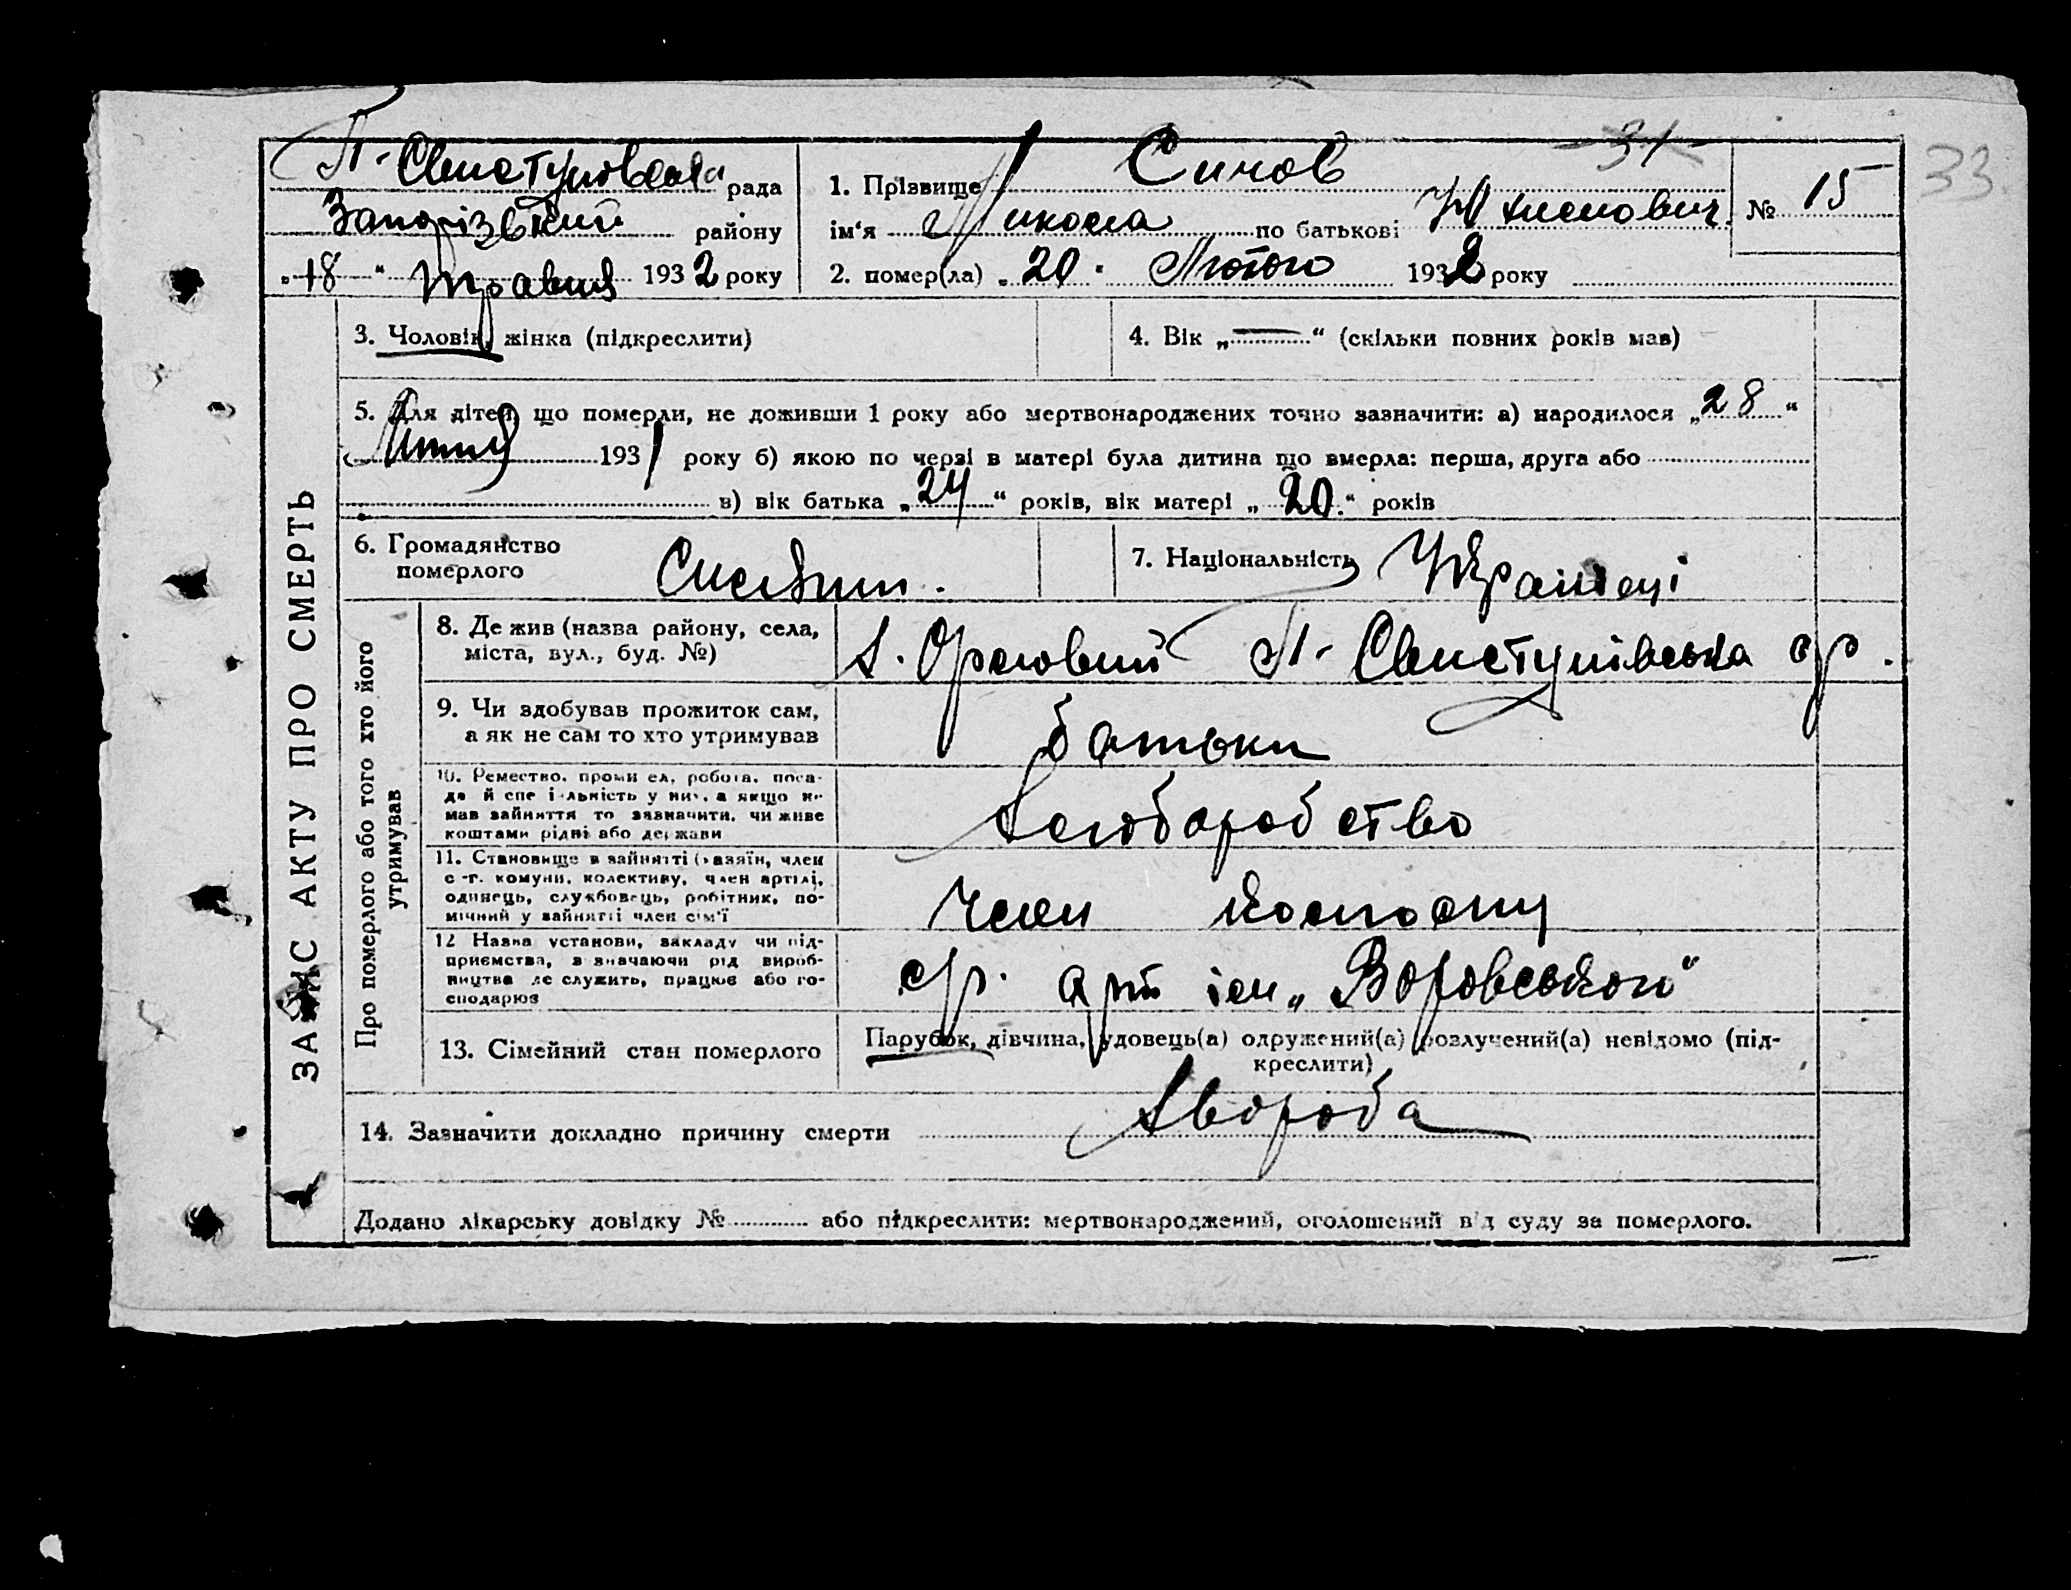 П-Свистунівська рада
Запорізький району
„18“ травня 1932 року
1. Прізвище Синов
ім‘я Микола по батькові
2. помер(ла) „20“ Лютого 1932 року
31
№ 15
33
ЗАПИС АКТУ ПРО СМЕРТЬ
3. Чоловік, жінка (підкреслити)
4. Вік „—“ (скільки повних років мав)
5. Для дітей, що померли, не доживши 1 року або мертвонароджених точно зазначити: а) народилося „28“
Липня 1931 року б) якою по черзі в матері була дитина що вмерла: перша, друга або
в) вік батька „24“ років, вік матері „20“ років
6. Громадянство
померлого
7. Національність Українці
Про померлого або того хто його
утримував
8. Де жив (назва району, села,
міста, вул., буд. №)
х. Орловий П-Свистунівська с/р.
9. Чи здобував прожиток сам,
а як не сам то хто утримував
батьки
10. Ремество, промисел, робота, поса-
да й спеціяльність у них, а якщо не
мав зайняття то зазначити, чи живе
коштами рідні або держави
хліборобство
11. Становище в зайнятті (хазяїн, член
с.-г. комуни, колективу, член артілі,
одинець, службовець, робітник, по-
мічний у зайнятті член сім‘ї
член колгоспу
12 Назва установи, закладу чи під-
приємства, зазначаючи рід вироб-
ництва де служить, працює або го-
сподарює
с/г. арт ім „Воровського“
13. Сімейний стан померлого
Парубок, дівчина, удовець(а) одружений(а) розлучений(а) невідомо (під-
креслити)
14. Зазначити докладно причину смерти хвороба
Додано лікарську довідку № або підкреслити: мертвонароджений, оголошений від суду за померлого.